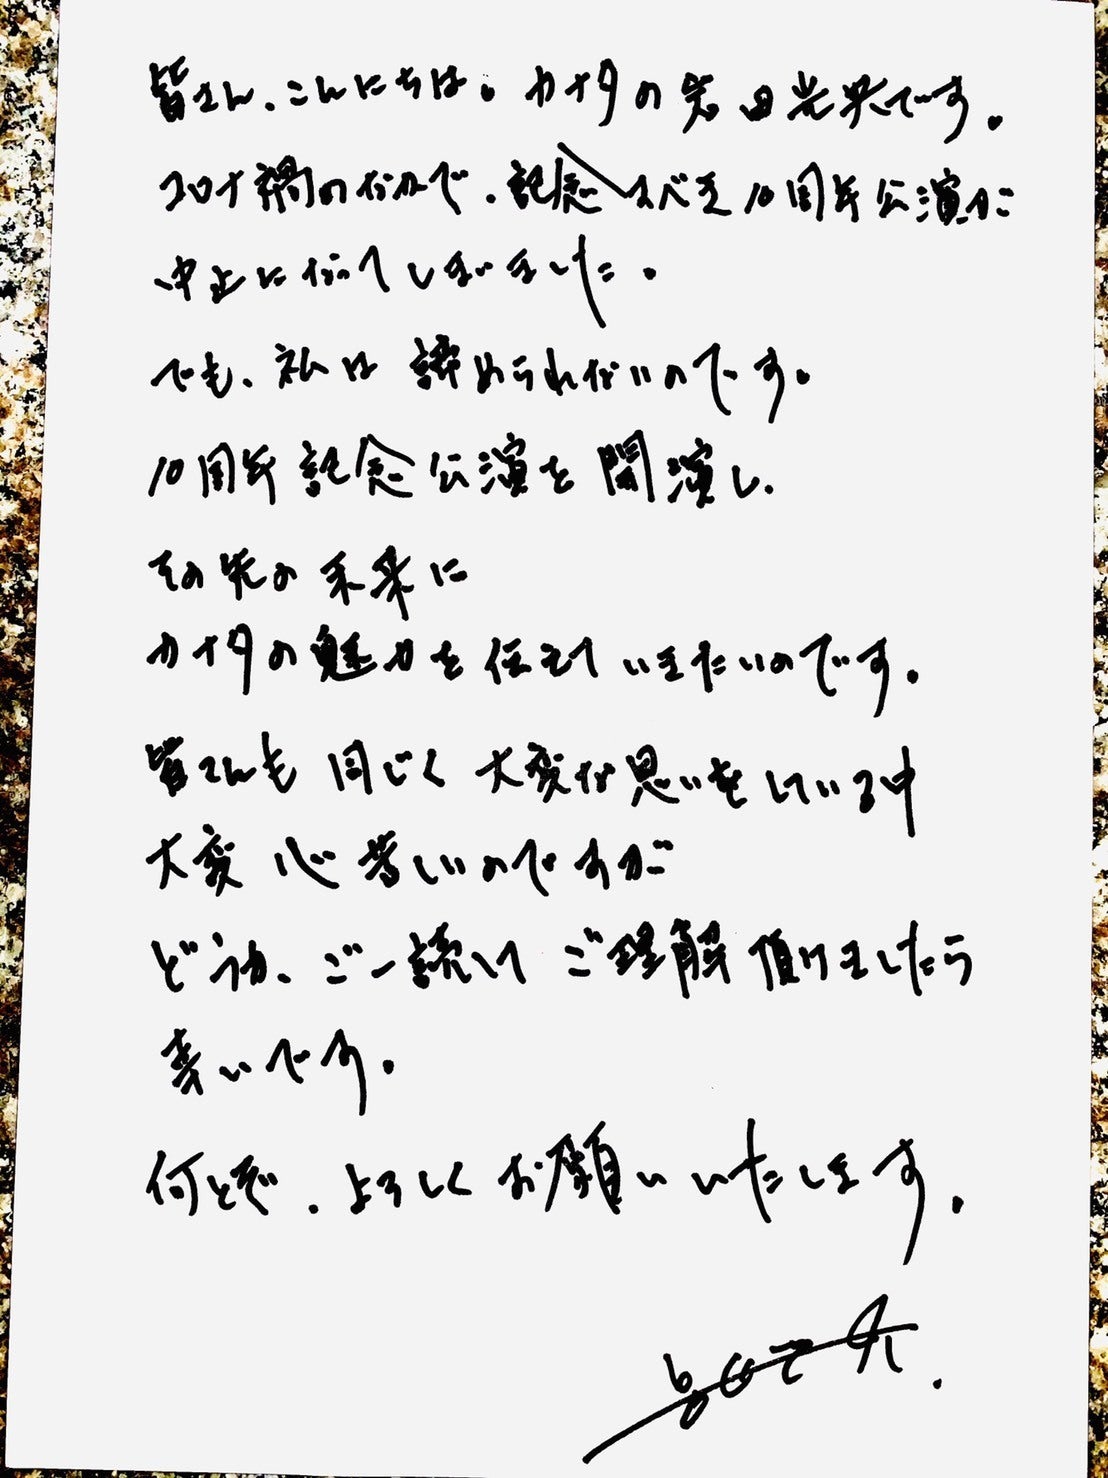 皆さん、こんにちは。カナタの
です。
コロナ禍のなかで、記念すべき10周年公演が
中止になってしまいました。
でも、私は諦められないのです。
10周年記念公演を開演し、
その先の未来に
カナタの魅力を伝えていきたいのです。
皆さんも同じく大変な思いをしている中
大変心苦しいのですが
どうか、ご一読してご理解頂けましたら
幸いです。
何とぞ、よろしくお願いいたします。